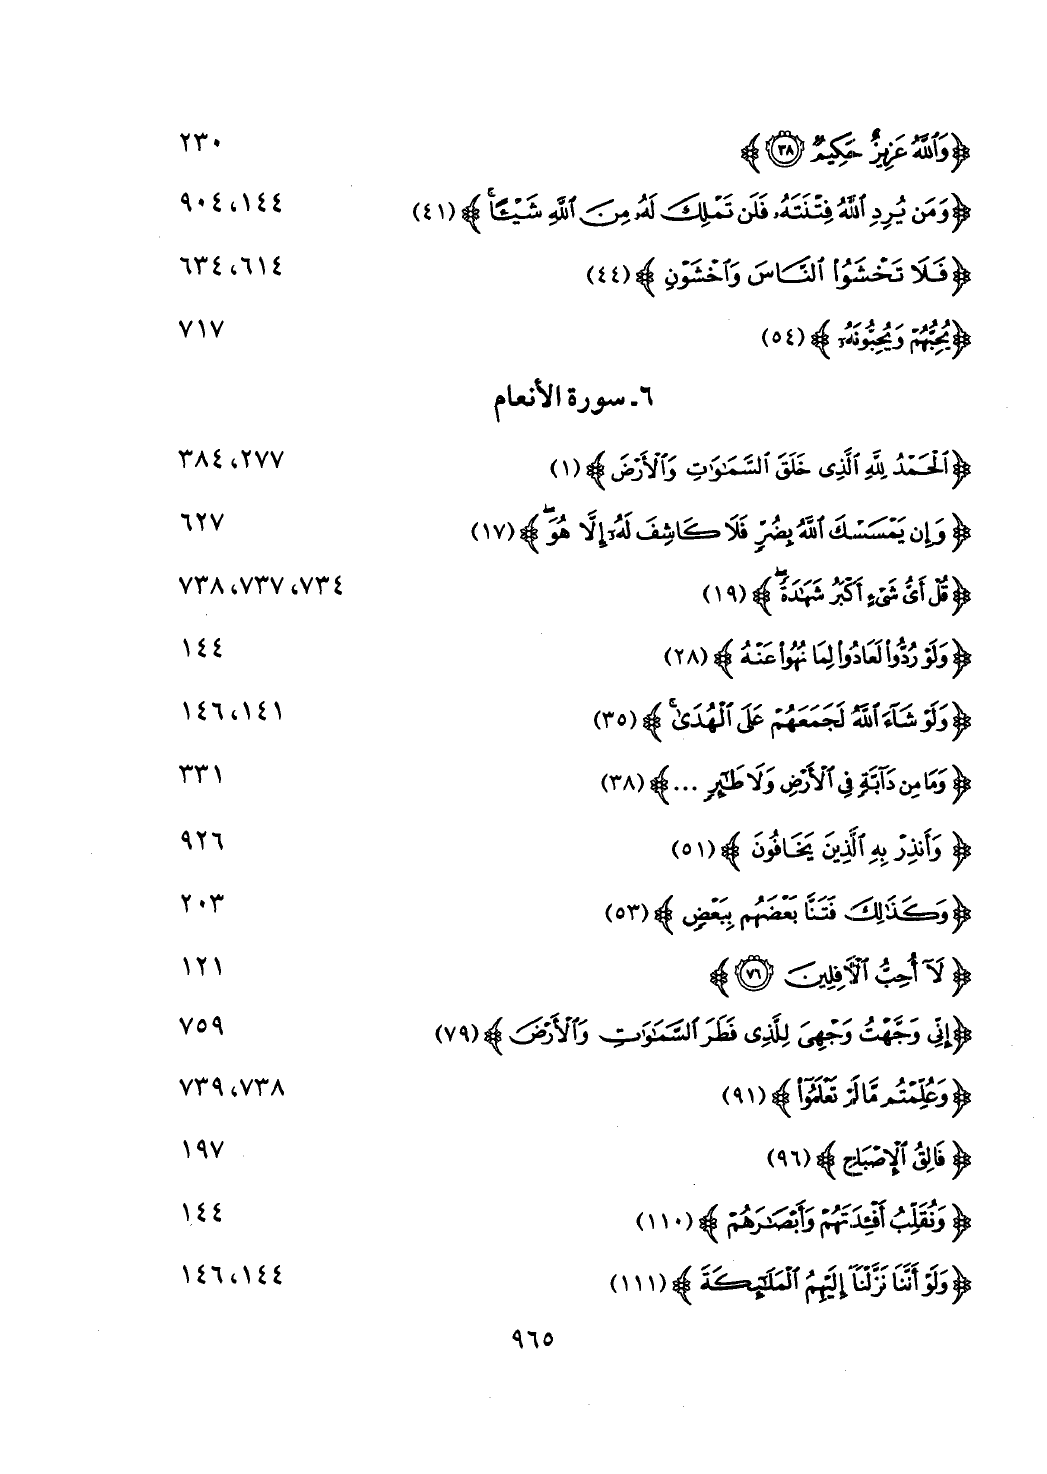 ﴿وَٱللَّهُ عَزِيزٌ حَكِيمٌ ٣٨﴾ ٢٣٠
﴿وَمَن يُرِدِ ٱللَّهُ فِتْنَتَهُۥ فَلَن تَمْلِكَ لَهُۥ مِنَ ٱللَّهِ شَيْـًٔاۚ﴾ (٤١) ١٤٤، ٩٠٤
﴿فَلَا تَخْشَوُا۟ ٱلنَّاسَ وَٱخْشَوْنِ﴾ (٤٤) ٦١٤، ٦٣٤
﴿يُحِبُّهُمْ وَيُحِبُّونَهُۥٓ﴾ (٥٤) ٧١٧
٦ـ سورة الأنعام
﴿ٱلْحَمْدُ لِلَّهِ ٱلَّذِى خَلَقَ ٱلسَّمَـٰوَٰتِ وَٱلْأَرْضَ﴾ (١) ٢٧٧، ٣٨٤
﴿وَإِن يَمْسَسْكَ ٱللَّهُ بِضُرٍّ فَلَا كَاشِفَ لَهُۥٓ إِلَّا هُوَۖ﴾ (١٧) ٦٢٧
﴿قُلْ أَىُّ شَىْءٍ أَكْبَرُ شَهَـٰدَةًۖ﴾ (١٩) ٧٣٤، ٧٣٧، ٧٣٨
﴿وَلَوْ رُدُّوا۟ لَعَادُوا۟ لِمَا نُهُوا۟ عَنْهُ﴾ (٢٨) ١٤٤
﴿وَلَوْ شَآءَ ٱللَّهُ لَجَمَعَهُمْ عَلَى ٱلْهُدَىٰۚ﴾ (٣٥) ١٤١، ١٤٦
﴿وَمَا مِن دَآبَّةٍ فِى ٱلْأَرْضِ وَلَا طَـٰٓئِرٍ ...﴾ (٣٨) ٣٣١
﴿وَأَنذِرْ بِهِ ٱلَّذِينَ يَخَافُونَ﴾ (٥١) ٩٢٦
﴿وَكَذَٰلِكَ فَتَنَّا بَعْضَهُم بِبَعْضٍ﴾ (٥٣) ٢٠٣
﴿لَآ أُحِبُّ ٱلْـَٔافِلِينَ ٧٦﴾ ١٢١
﴿إِنِّى وَجَّهْتُ وَجْهِىَ لِلَّذِى فَطَرَ ٱلسَّمَـٰوَٰتِ وَٱلْأَرْضَ﴾ (٧٩) ٧٥٩
﴿وَعُلِّمْتُم مَّا لَمْ تَعْلَمُوٓا۟﴾ (٩١) ٧٣٨، ٧٣٩
﴿فَالِقُ ٱلْإِصْبَاحِ﴾ (٩٦) ١٩٧
﴿وَنُقَلِّبُ أَفْـِٔدَتَهُمْ وَأَبْصَـٰرَهُمْ﴾ (١١٠) ١٤٤
﴿وَلَوْ أَنَّنَا نَزَّلْنَآ إِلَيْهِمُ ٱلْمَلَـٰٓئِكَةَ﴾ (١١١) ١٤٤، ١٤٦
٩٦٥